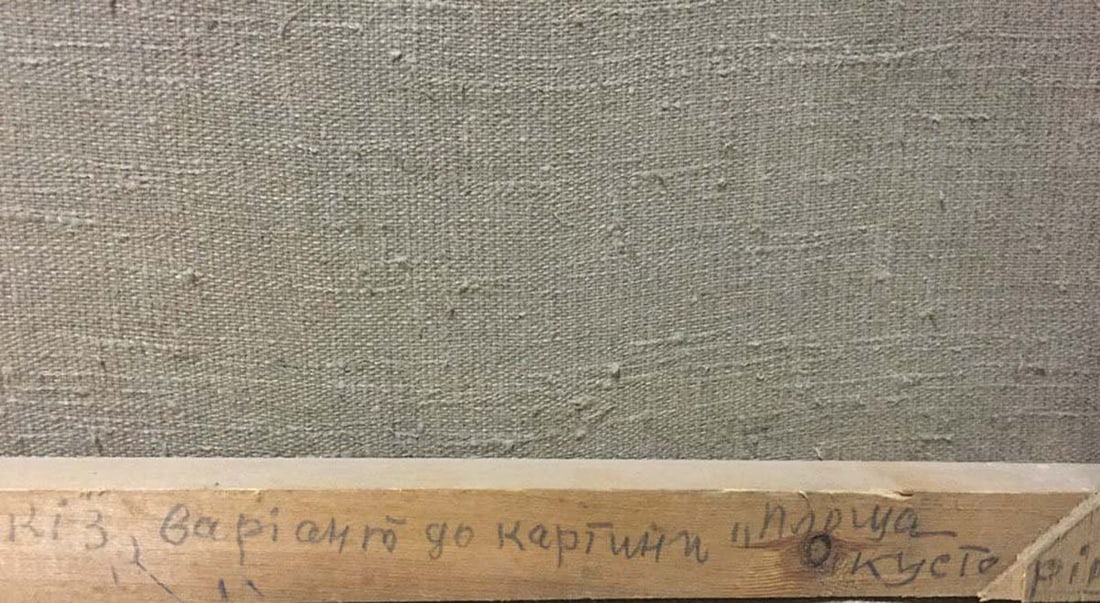 кіз, варіант до картини „Площа
кусто рів